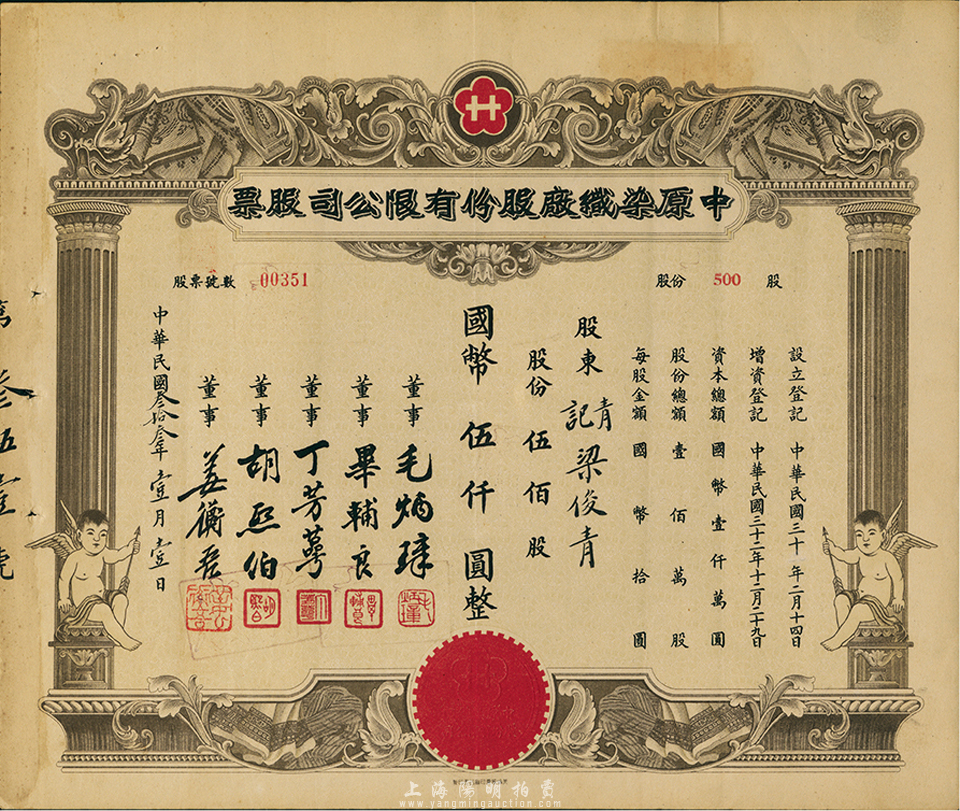 中原染織廠股份有限公司股票
股份 500 股
股票號數 00351
設立登記 中華民國三十年二月十四日
增資登記 中華民國三十二年十二月二十九日
資本總額 國幣壹仟萬圓
股份總額 壹佰萬股
每股金額 國幣拾圓
股東 青記 梁俊青
股份伍佰股
國幣伍仟圓整
董事 毛炳璋
董事 畢輔良
董事 丁芳萼
董事 胡熙伯
董事 姜衡吾
中華民國叁拾叁年壹月壹日
第叁五壹號
上海陽明拍賣
www.yangmingauction.com